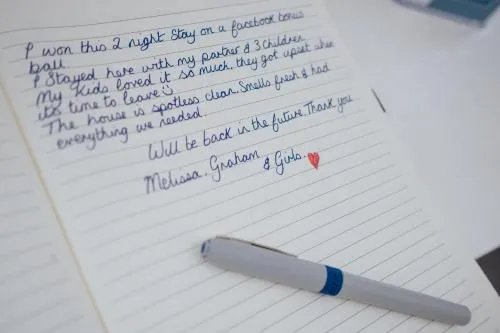 I won this 2 night Stay on a facebook bonus
ball
I Stayed here with my partner & 3 Children.
My Kids loved it so much, they got upset when
its time to leave
The house is spotless clean. Smells fresh & had
everything we needed.
Will be back in the future. Thank you
Melissa, Graham & Girls.